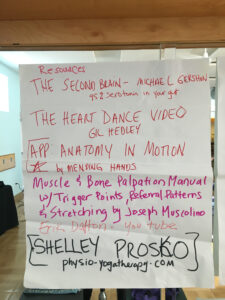 Resources
THE SECOND BRAIN - MICHAEL GERSHON
95% serotonin in your gut
THE HEART DANCE VIDEO
GIL HEDLEY
APP ANATOMY IN MOTION
by MENDING HANDS
Muscle & Bone Palpation Manual
w/ Trigger Points, Referral Patterns
& Stretching by Joseph Muscolino
Eric Dalton - You tube
SHELLEY PROSKO
physio-yogatherapy.com